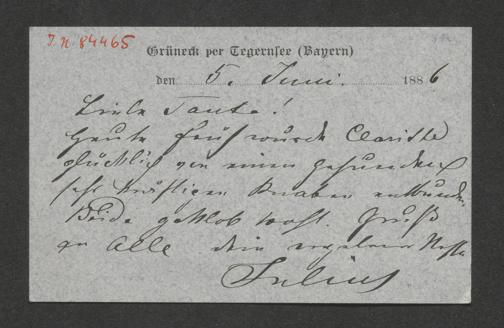 I.N. 84465
Grüneck per Tegernsee (Bayern)
den 5. Juni. 1886
Liebe Tante!
Heute früh wurde Clarisse
glücklich von einem gesunden
sehr kräftigen Knaben entbunden.
Beide gottlob wohl. Gruß
an Alle dein ergebener Neffe
Julius